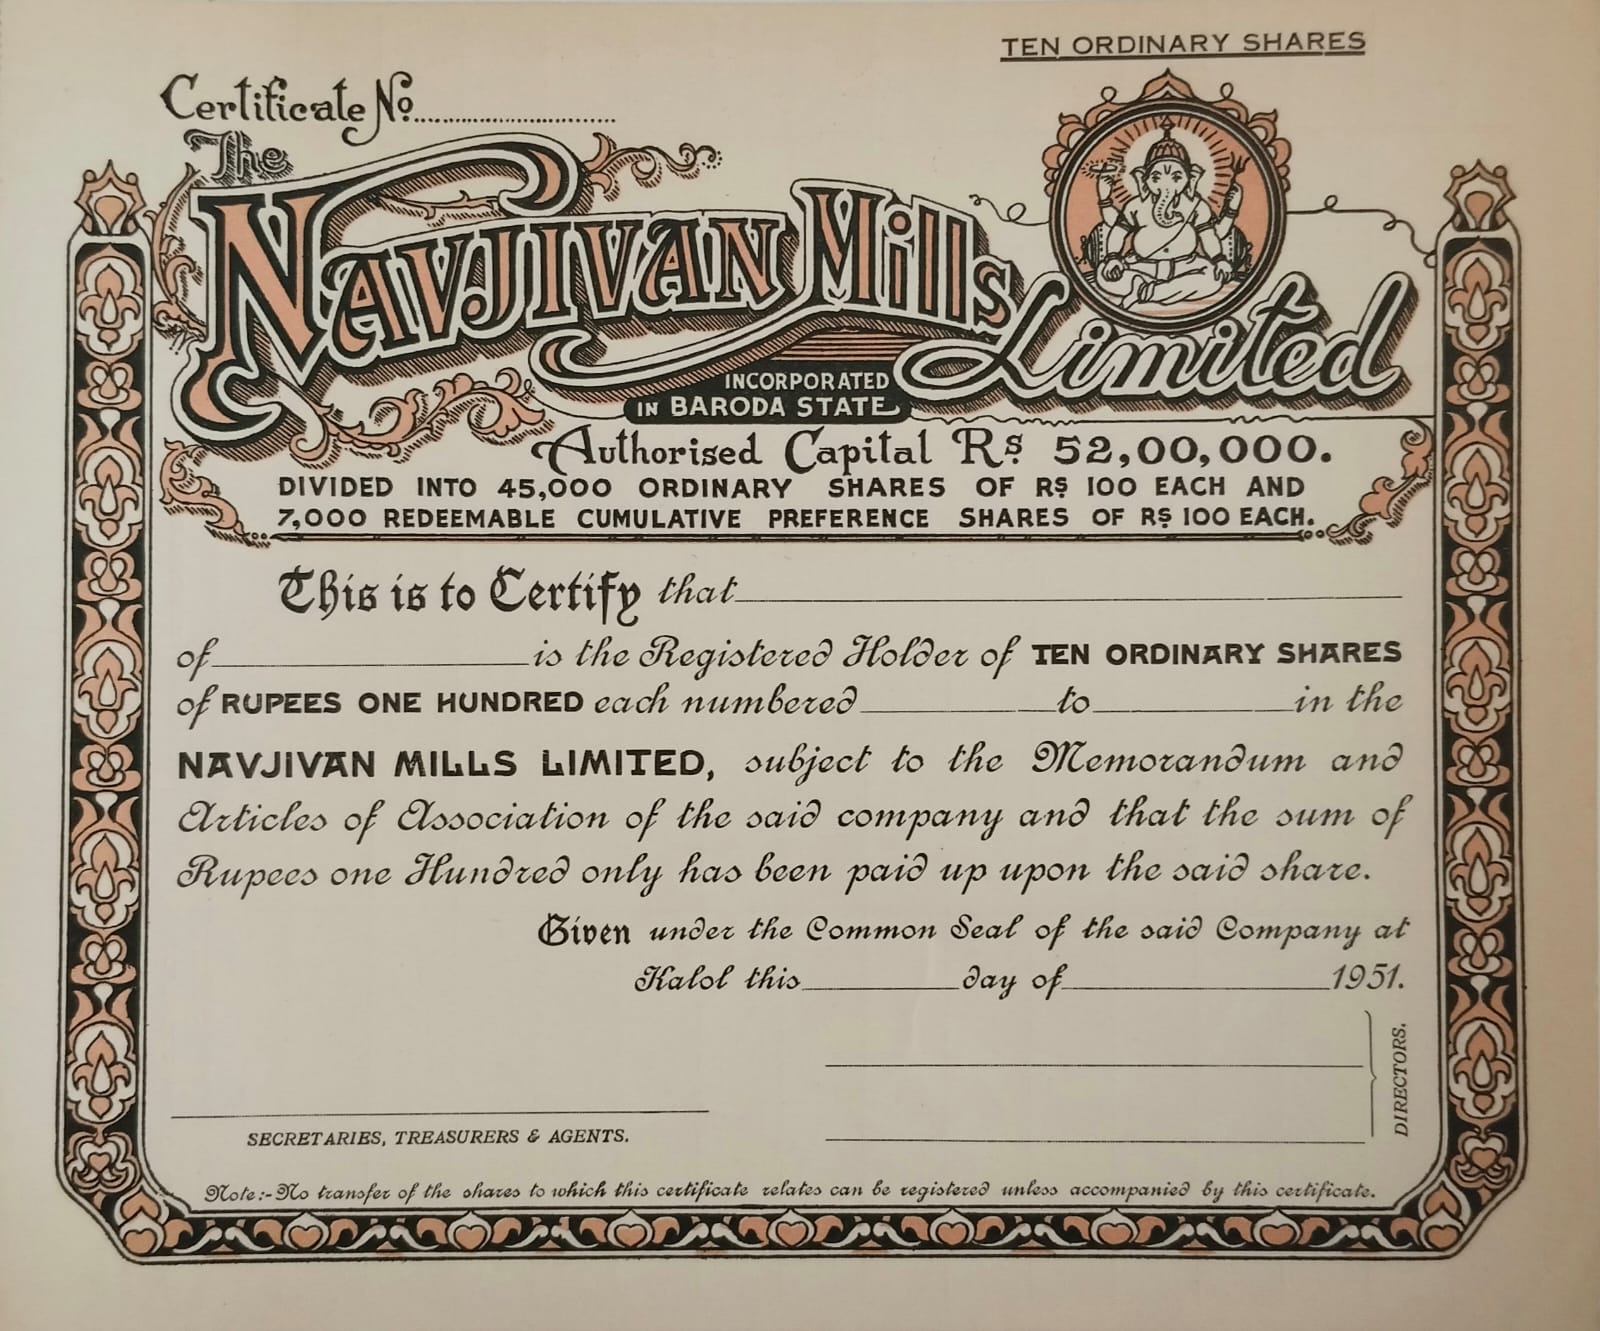 TEN ORDINARY SHARES
Certificate No.
The
NAVJIVAN Mills
Limited
INCORPORATED
IN BARODA STATE
Authorised Capital Rs. 52,00,000.
DIVIDED INTO 45,000 ORDINARY SHARES OF RS 100 EACH AND
7,000 REDEEMABLE CUMULATIVE PREFERENCE SHARES OF RS 100 EACH.
This is to Certify that
of is the Registered Holder of TEN ORDINARY SHARES
of RUPEES ONE HUNDRED each numbered to in the
NAVJIVAN MILLS LIMITED, subject to the Memorandum and
Articles of Association of the said company and that the sum of
Rupees one Hundred only has been paid up upon the said share.
Given under the Common Seal of the said Company at
Kalol this day of 1951.
DIRECTORS.
SECRETARIES, TREASURERS & AGENTS.
Note:- No transfer of the shares to which this certificate relates can be registered unless accompanied by this certificate.